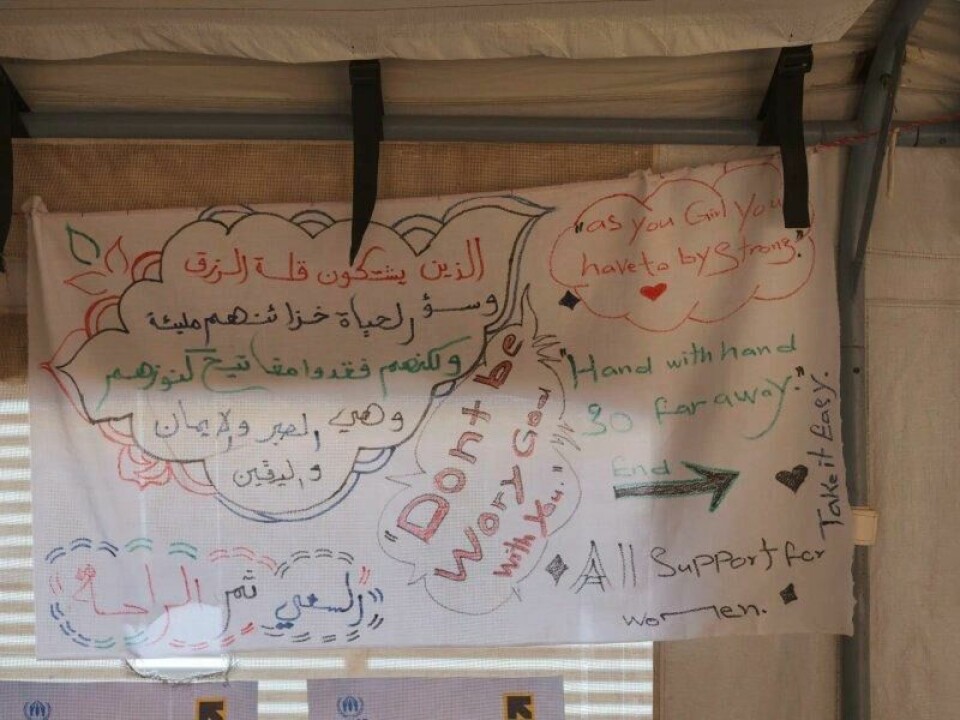 الذين يشتكون قلة الرزق
وسؤ الحياة خزائنهم مليئة
ولكنهم فقدوا مفاتيح كنوزهم
وهي الصبر والإيمان
واليقين
"السعي ثم الراحة"
"Dont be
Wory God
with you."
"as you Girl you
have to by strong."
"Hand with hand
go far away."
End
Take it Easy.
All Support for
women.